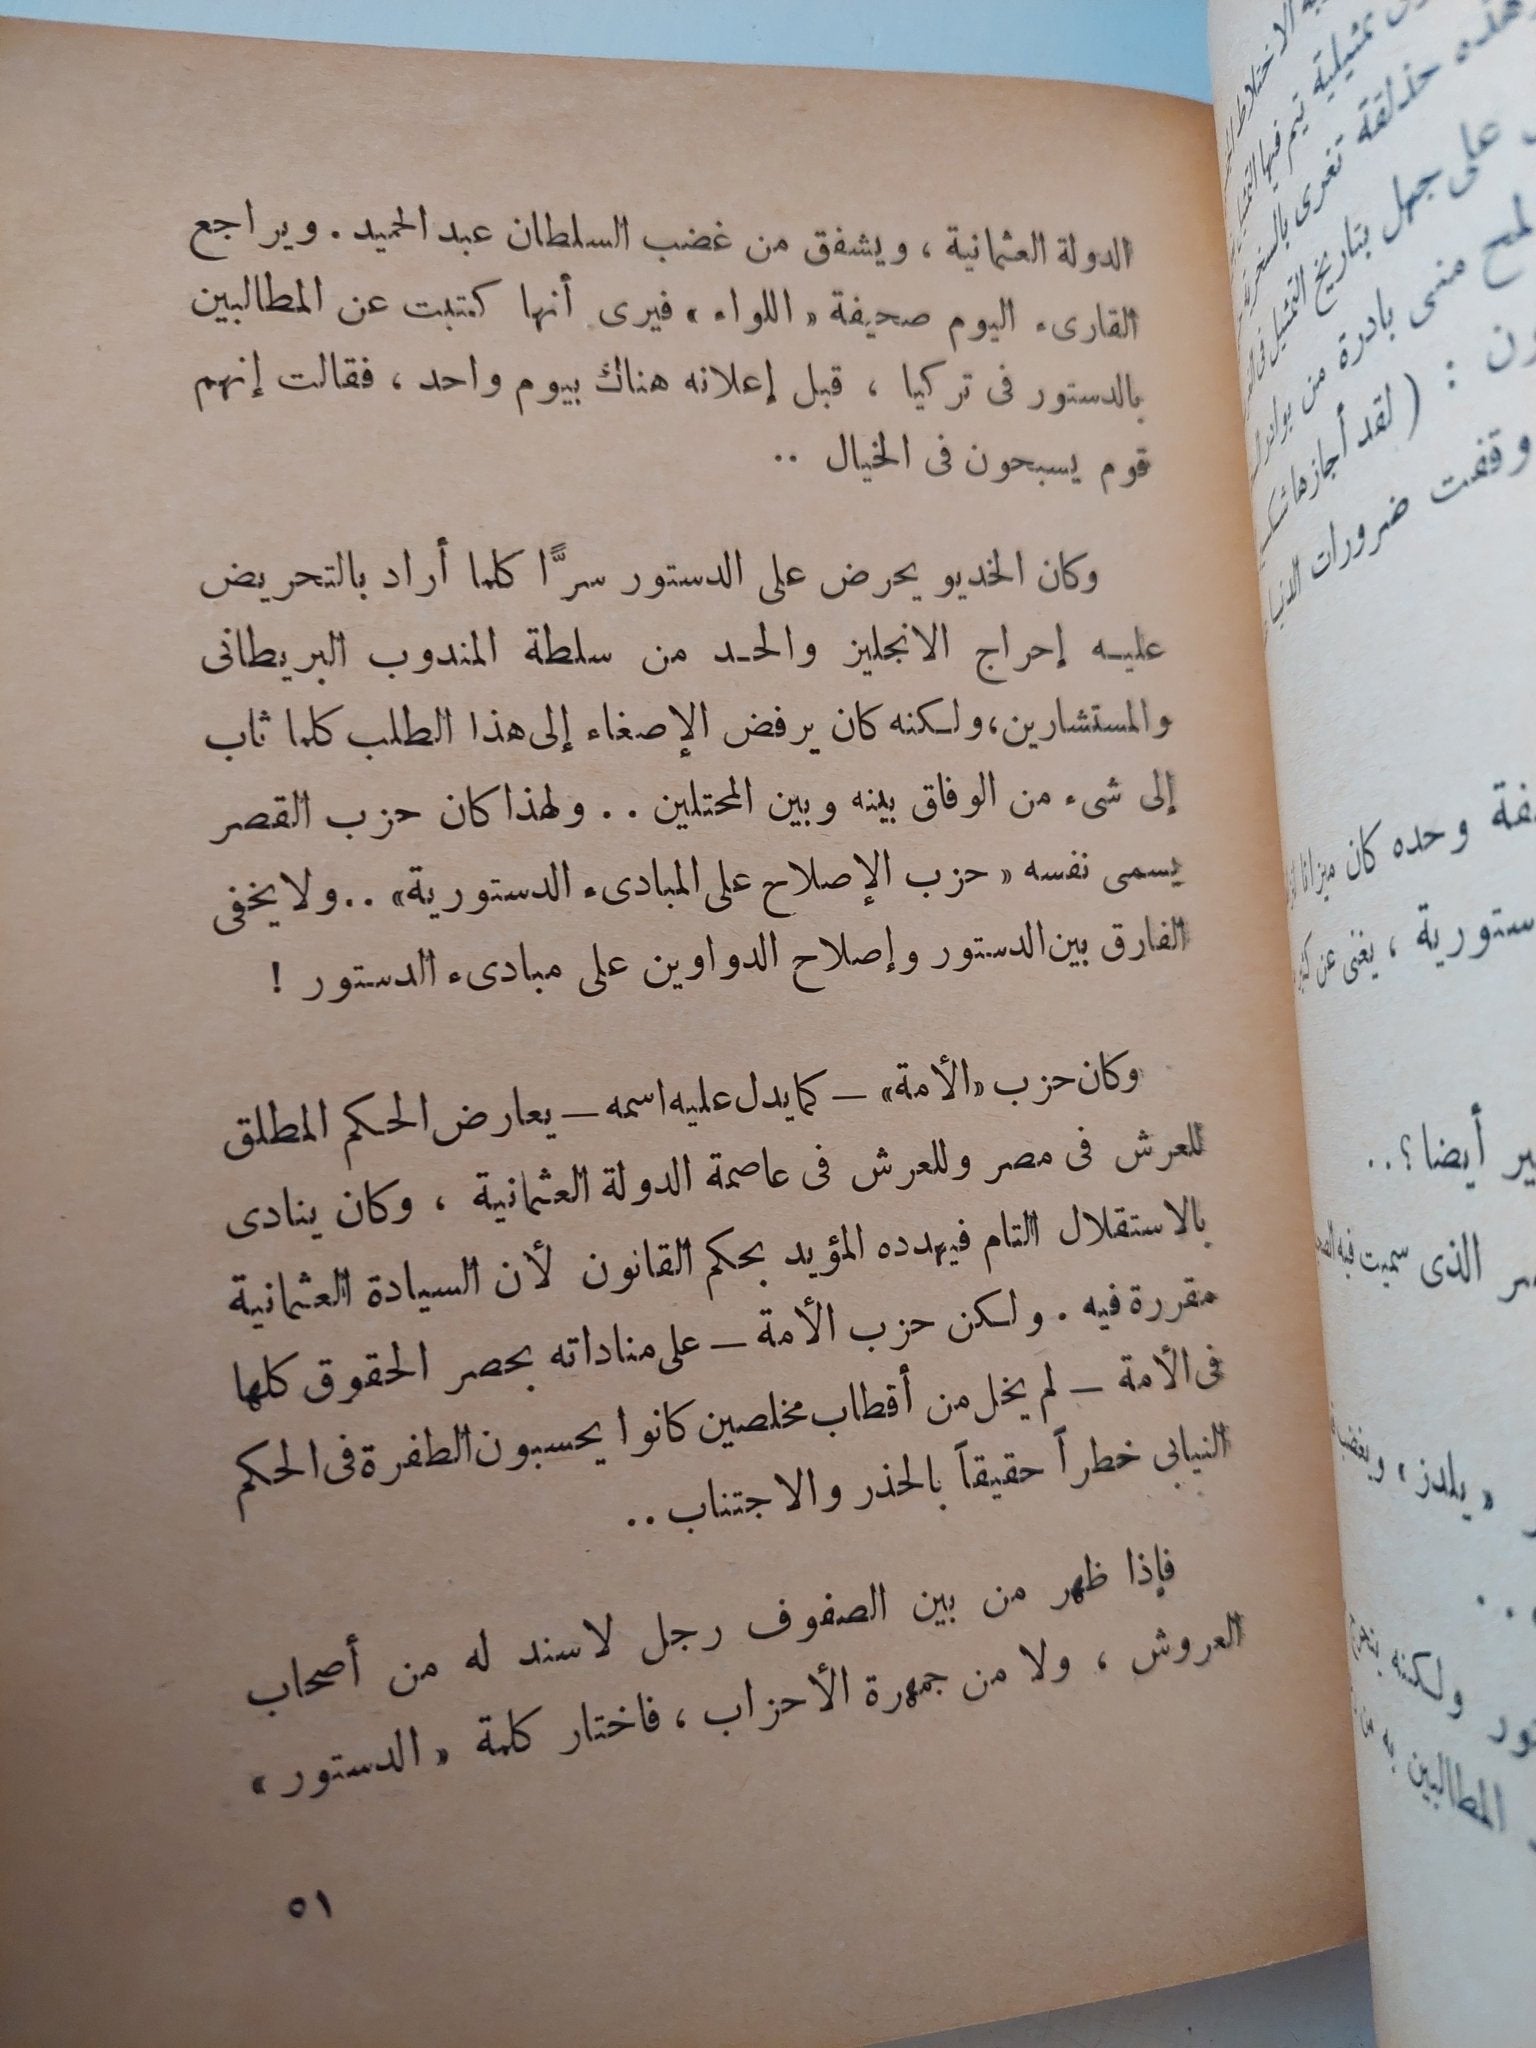 الدولة العثمانية ، ويشفق من غضب السلطان عبد الحميد . ويراجع
القارىء اليوم صحيفة « اللواء » فيرى أنها كتبت عن المطالبين
بالدستور فى تركيا ، قبل إعلانه هناك بيوم واحد ، فقالت إنهم
قوم يسبحون فى الخيال ..
وكان الخديو يحرض على الدستور سرًّا كلما أراد بالتحريض
عليه إحراج الانجليز والحد من سلطة المندوب البريطانى
والمستشارين، ولكنه كان يرفض الإصغاء إلى هذا الطلب كلما ثاب
إلى شىء من الوفاق بينه وبين المحتلين . . ولهذا كان حزب القصر
يسمى نفسه « حزب الإصلاح على المبادىء الدستورية» . . ولا يخفى
الفارق بين الدستور وإصلاح الدواوين على مبادىء الدستور !
وكان حزب «الأمة» – كما يدل عليه اسمه – يعارض الحكم المطلق
للعرش فى مصر وللعرش فى عاصمة الدولة العثمانية ، وكان ينادى
بالاستقلال التام فيهدده المؤيد بحكم القانون لأن السيادة العثمانية
مقررة فيه . ولكن حزب الأمة – على مناداته بحصر الحقوق كلها
فى الأمة – لم يخل من أقطاب مخلصين كانوا يحسبون الطفرة فى الحكم
النيابى خطراً حقيقاً بالحذر والاجتناب . .
فإذا ظهر من بين الصفوف رجل لا سند له من أصحاب
العروش ، ولا من جمهرة الأحزاب ، فاختار كلمة « الدستور »
٥١
الاختلاط
تمثيلية تيم فيها
وهذه حذلقة تغرى بالسخرية
على جهل بتاريخ التمثيل فى
منى بادرة من بوادر
ون : ( لقد أجازها
وقفت ضرورات الدنيا
وحده كان ميزانا
ستورية ، يغنى عن
ير أيضا ؟ . .
الذى سميت فيه
« يلدز »
ولكنه
المطالبين به من